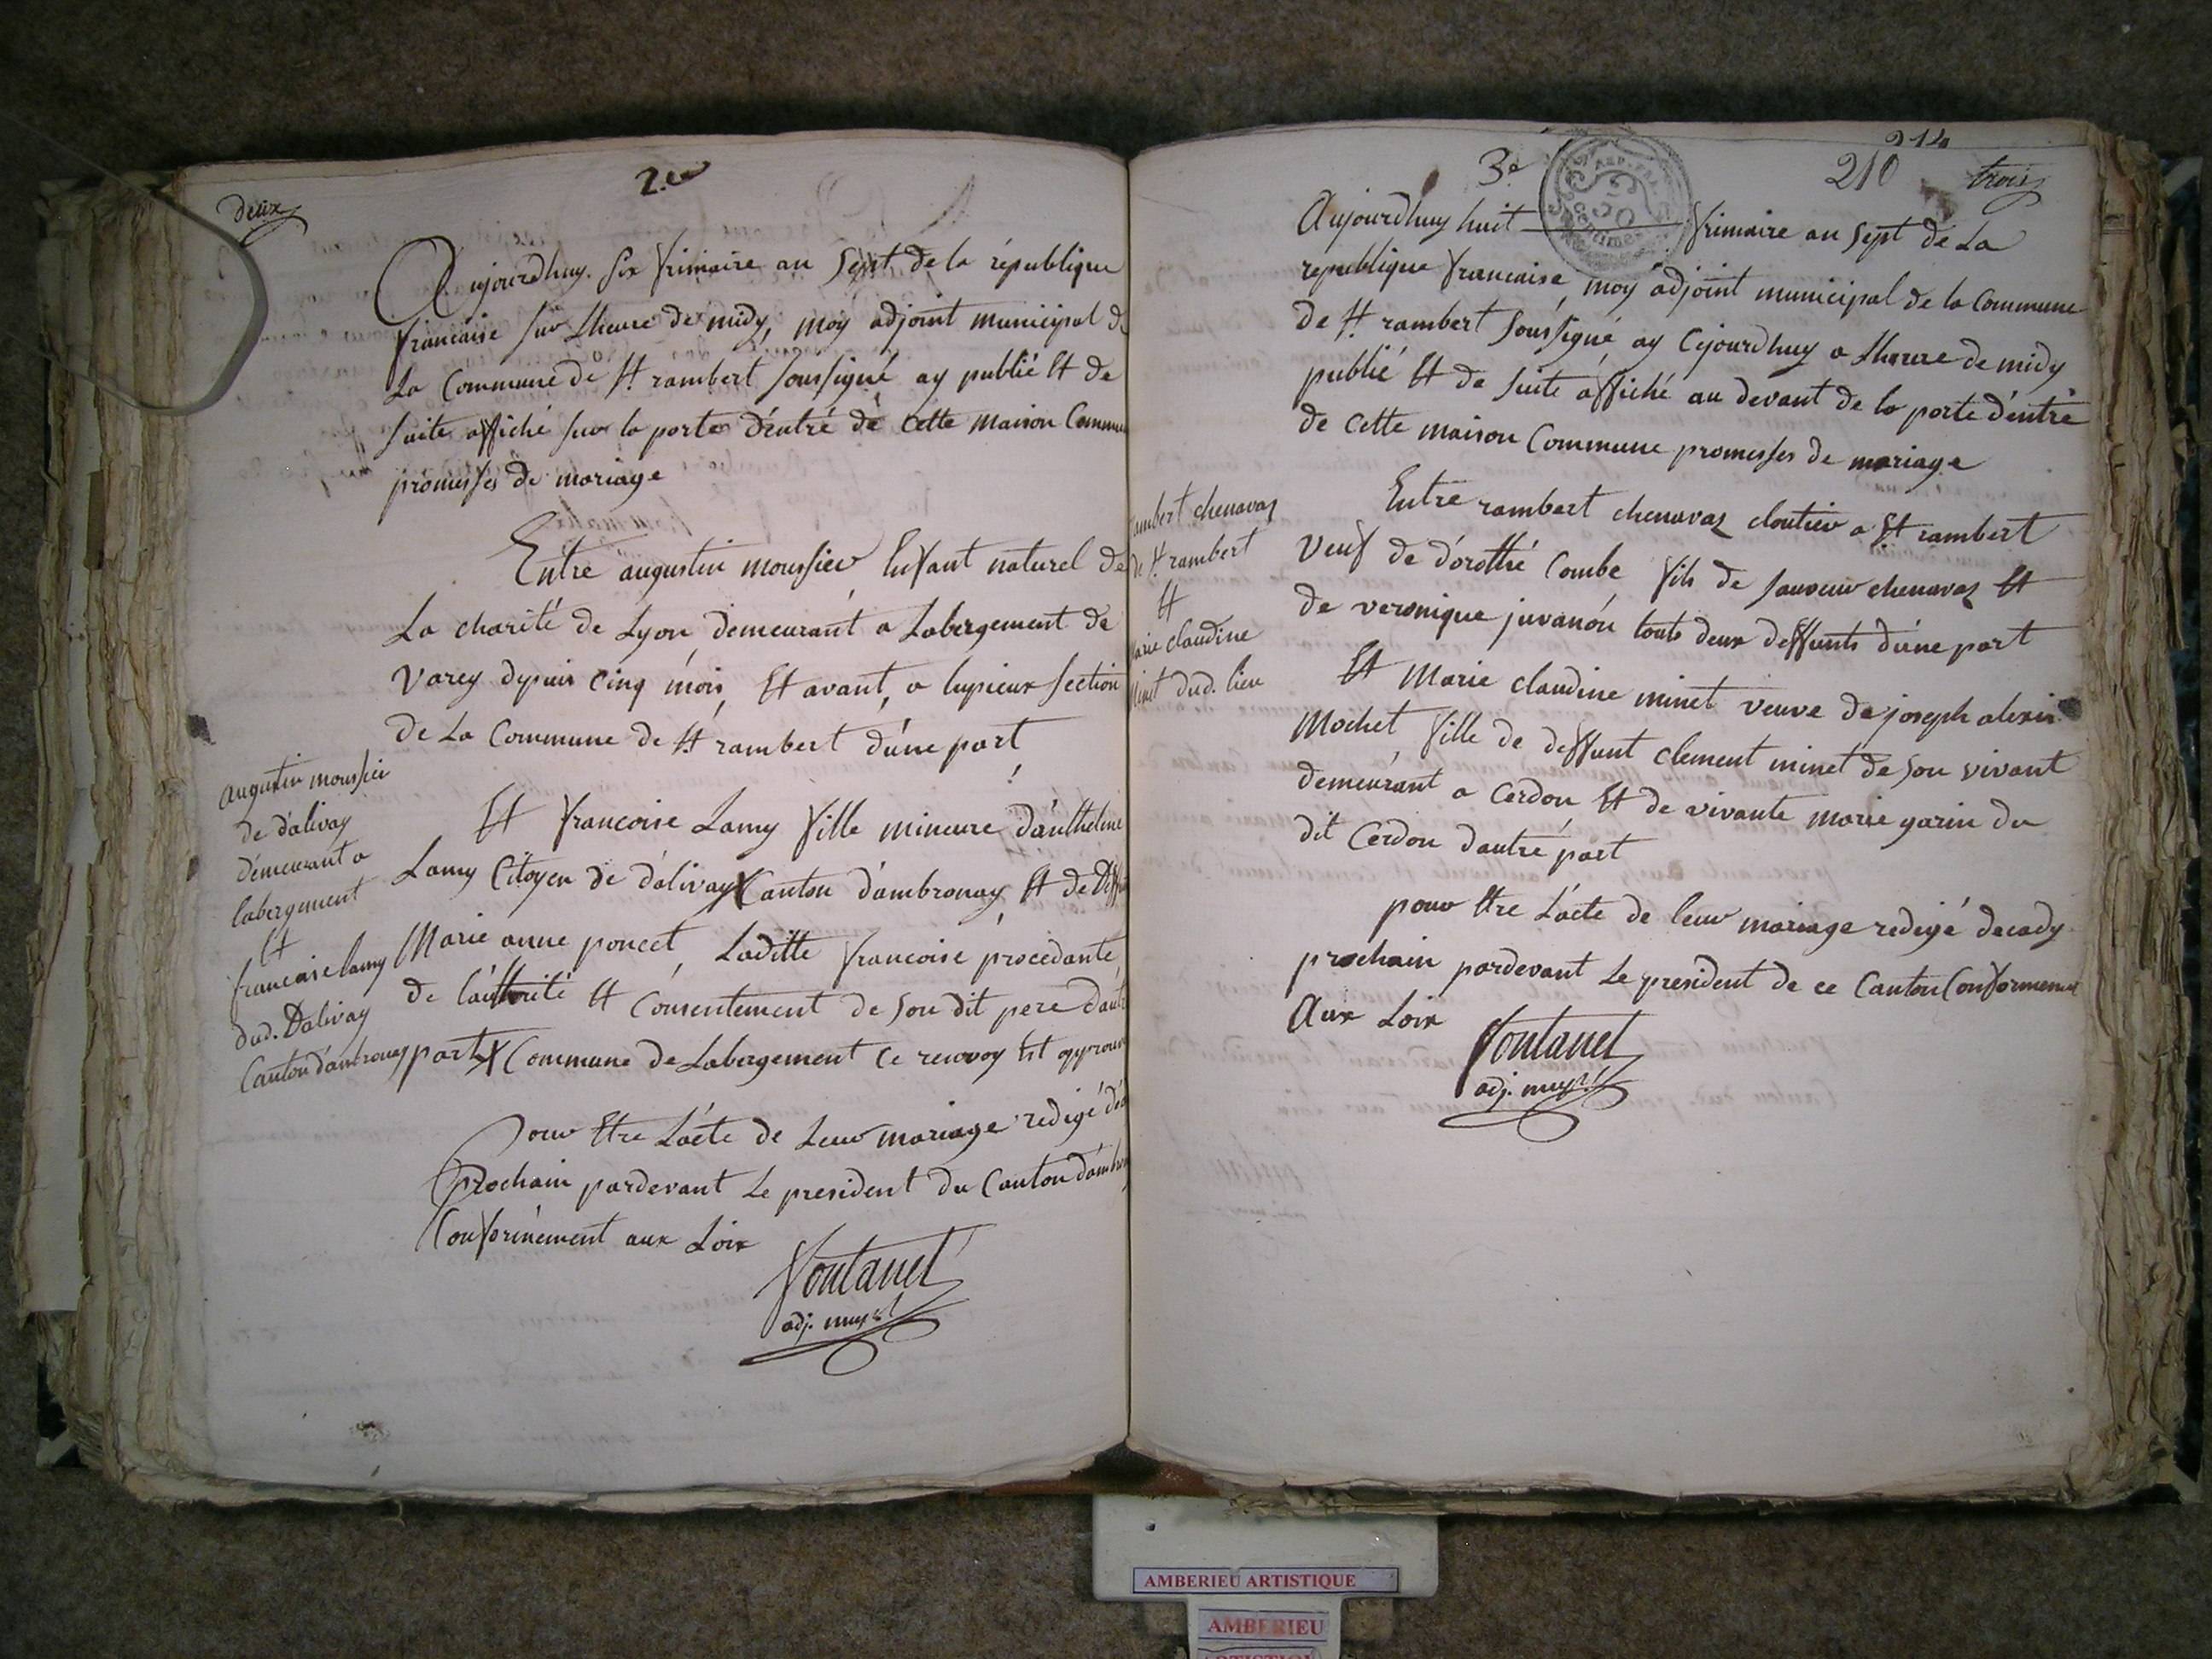 deux
2.e
Aujourdhuy. six frimaire an sept de la république
francaise sur Lheure de midy, moy adjoint municipal de
La Commune de St. rambert soussigné ay publié Et de
suite affiché sur la porte d'entré de cette maison Commune
promesses de mariage
Entre augustin moussier Enfant naturel de
La charité de Lyon demeurant a Labergement de
Varey depuis cinq mois, Et avant, a lupieux section
de La Commune de St. rambert dune part
Et francoise Lamy fille mineure dauthelme
Lamy Citoyen de dalivay X Canton dambronay, Et de Deffu
Marie anne poncet, Laditte francoise procedante
de lauthorité Et Consentement de son dit pere dautre
part X Commune de Labergement ce renvoy Est approuvé
pour Etre Lacte de Leur mariage redigé
prochain pardevant Le president du Canton
Conformément aux Loix
fontanel
adj. mup.al
augustin moussier
de dalivay
demeurant a
labergement
Et
francoise lamy
dud. Dalivay
Canton dambronay
3e
214
210
trois
REP. FRA
50
centimes
Aujourdhuy huit frimaire an sept de La
republique francaise moy adjoint municipal de la Commune
de St. rambert soussigné ay Cejourdhuy a Lheure de midy
publié Et de suite affiché au devant de la porte d'entré
de cette maison Commune promesses de mariage
Entre rambert chenavaz cloutier a St rambert
veuf de dorothé Combe fils de sauveur chenavaz Et
de veronique juvanon touts deux deffunts dune part
Et Marie claudine minet veuve de joseph alexis
Mochet, fille de deffunt clement minet de son vivant
demeurant a Cerdon, Et de vivante marie garin du
dit Cerdon dautre part
pour Etre Lacte de leur mariage redigé decady
prochain pardevant Le president de ce Canton Conformement
Aux Loix
fontanel
adj. mup.al
ambert chenavaz
de St. rambert
Et
arie claudine
minet dud. lieu
AMBERIEU ARTISTIQUE
AMBERIEU
ARTISTIQUE